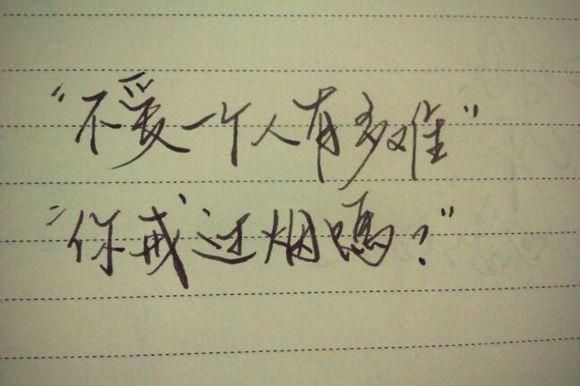 “不爱一个人有多难”
“你戒过烟嗎?”